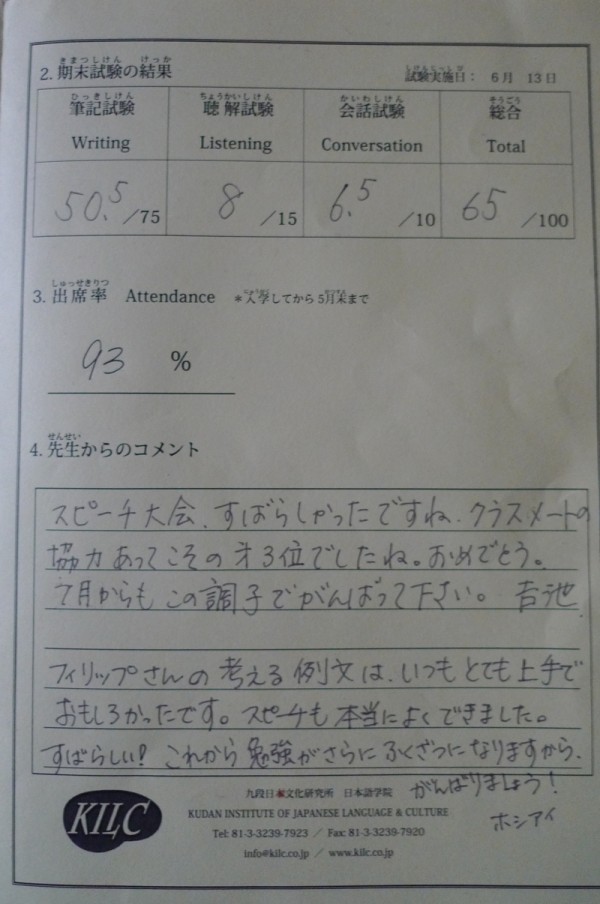 きまつしけん けっか
2. 期末試験の結果
しけんじっしび
試験実施日： 6月 13日
ひっきしけん ちょうかいしけん かいわしけん そうごう
筆記試験 聴解試験 会話試験 総合
Writing Listening Conversation Total
50.5/75 8/15 6.5/10 65/100
しゅっせきりつ
3. 出席率 Attendance ＊入学してから5月末まで
93 %
せんせい
4. 先生からのコメント
スピーチ大会、すばらしかったですね。クラスメートの
協力あってこその才3位でしたね。おめでとう。
7月からもこの調子でがんばって下さい。 吉池
フィリップさんの考える例文は、いつもとても上手で
おもしろかったです。スピーチも本当によくできました。
すばらしい! これから勉強がさらにふくざつになりますから、
がんばりましょう!
ホシアイ
KILC
九段日本文化研究所 日本語学院
KUDAN INSTITUTE OF JAPANESE LANGUAGE & CULTURE
Tel: 81-3-3239-7923 ／ Fax: 81-3-3239-7920
info@kilc.co.jp ／ www.kilc.co.jp